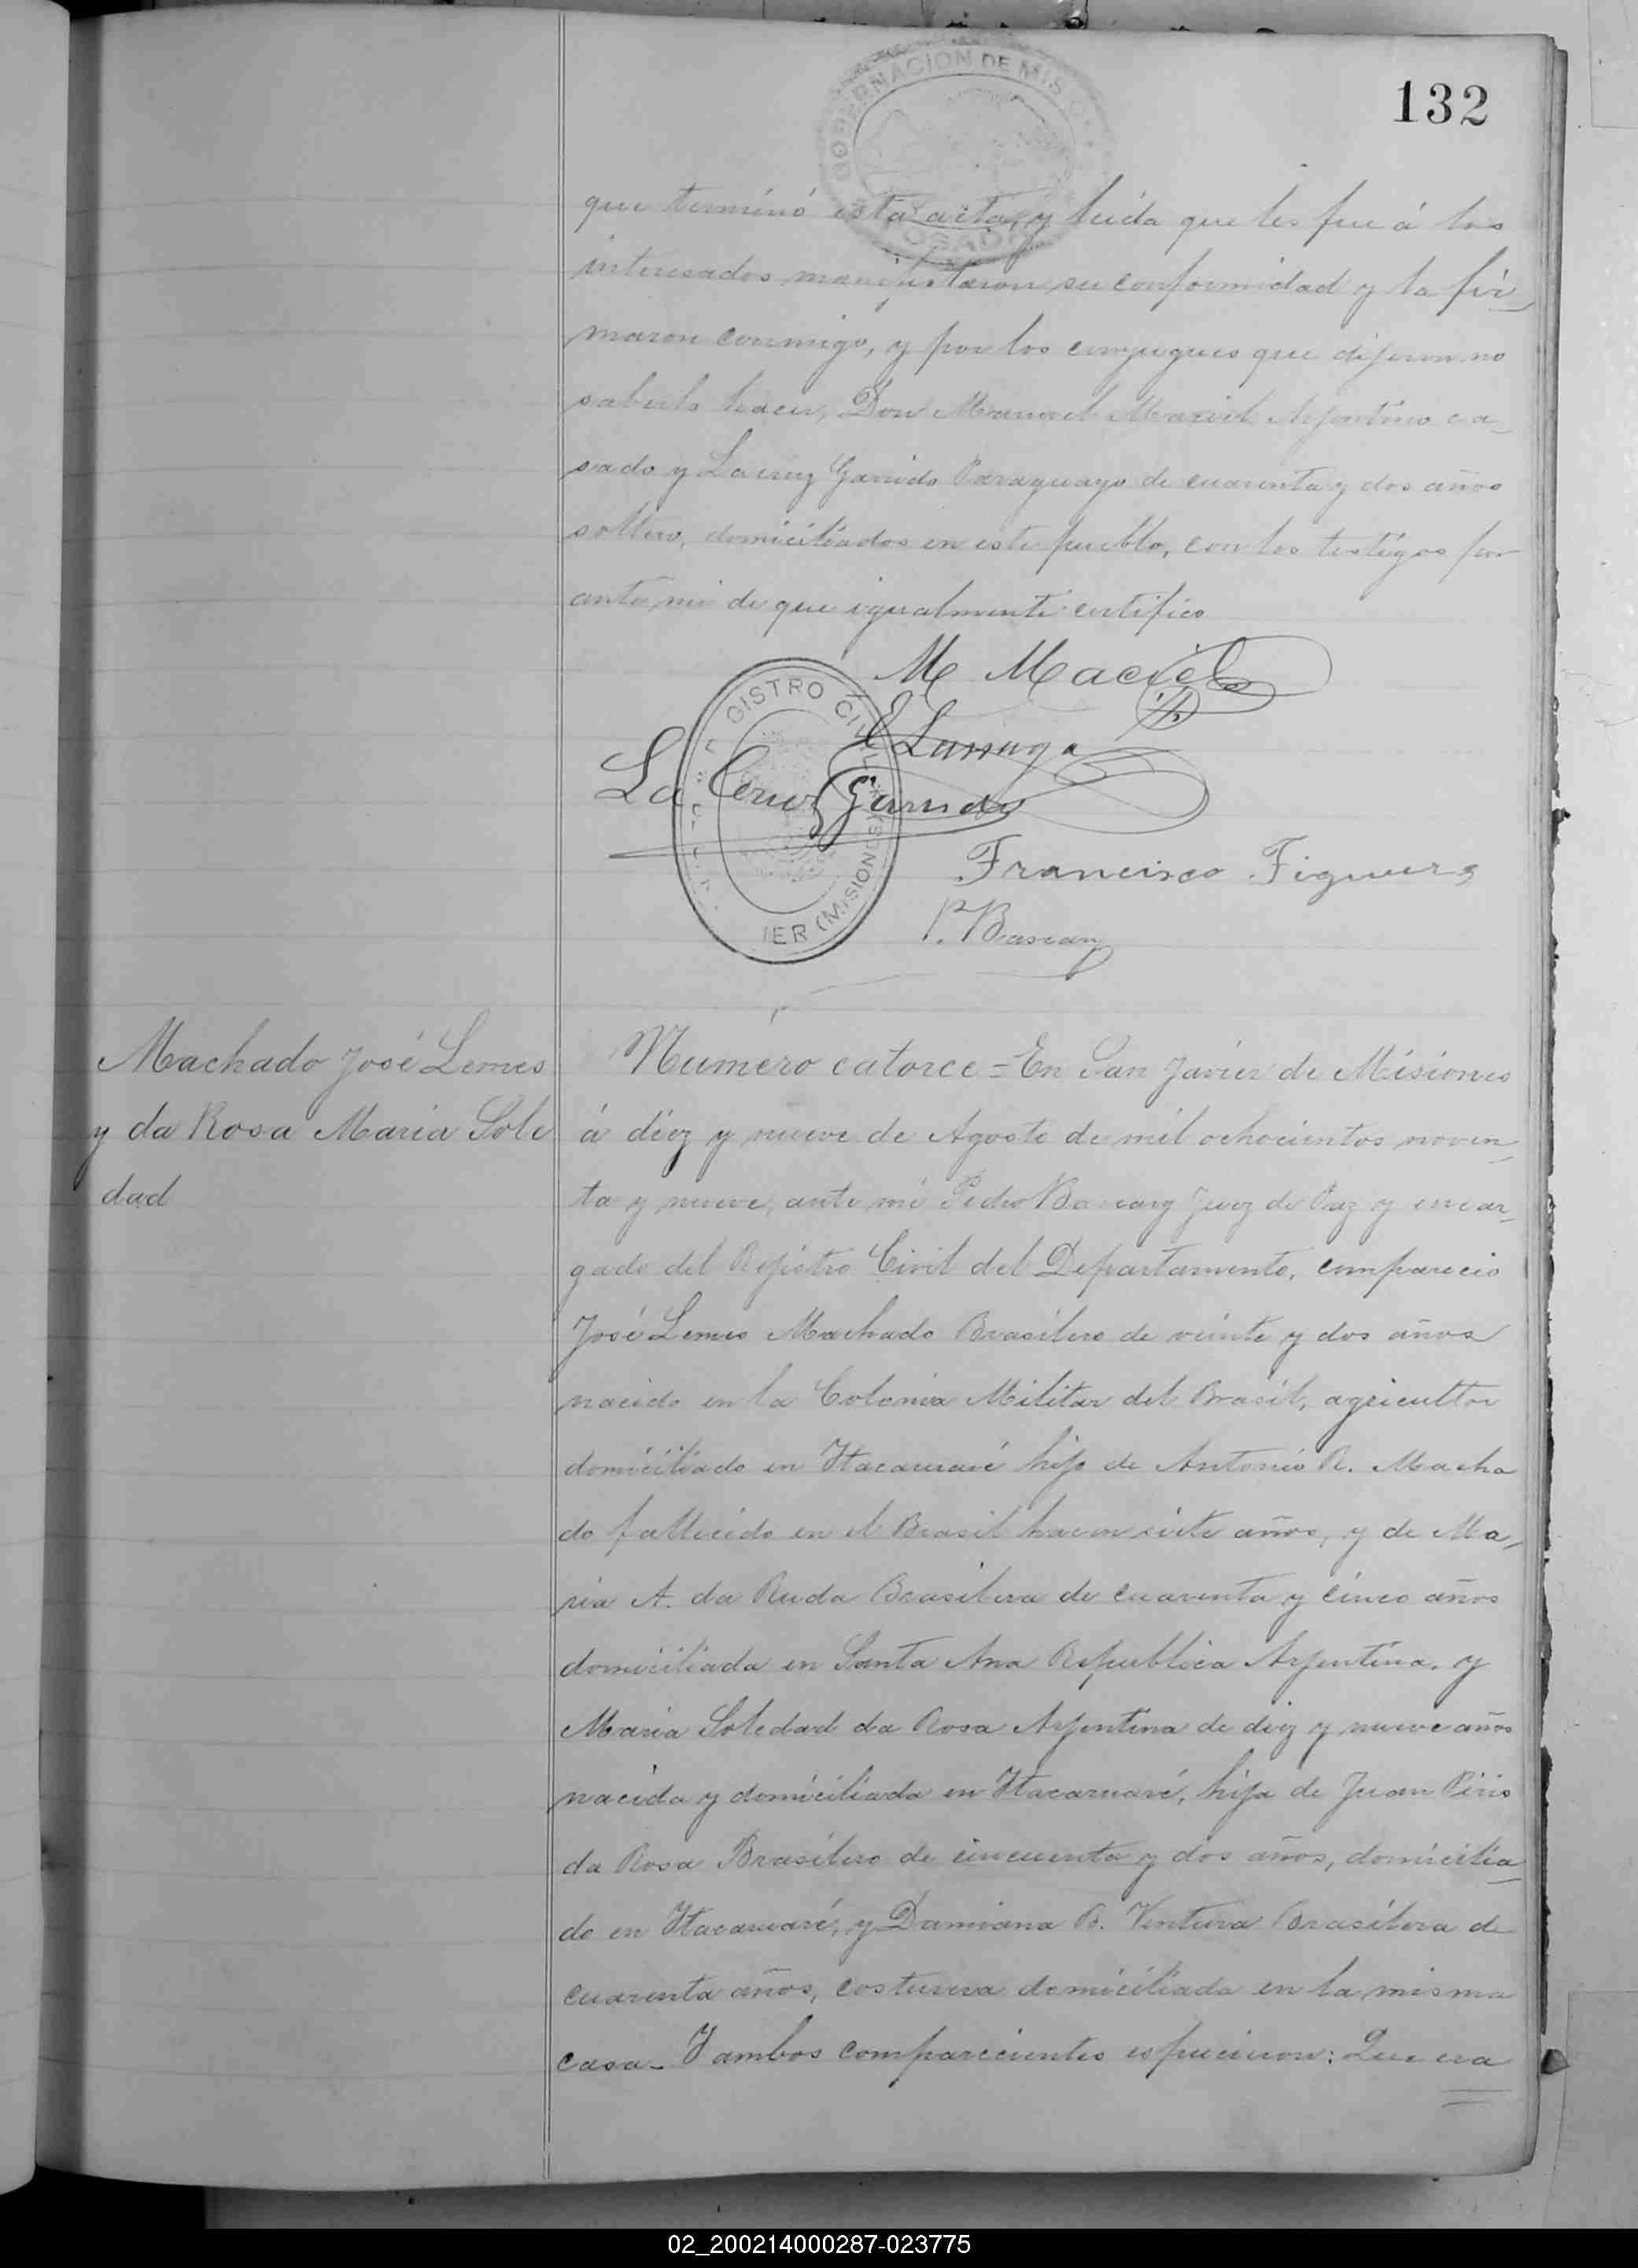 GOBERNACION DE MISIO
POSADAS
132
que terminó esta acta, y leida que les fue á los
interesados manifestaron su conformidad y la fir_
maron conmigo, y por los conyugues que dijeron no
saberlo hacer, Don Manuel Maciel Arjentino ca_
sado y Lacruz Garrido Paraguayo de cuarenta y dos años
soltero, domiciliados en este pueblo, con los testigos por
ante mi de que igualmente certifico
M Maciel
La Cruz Garrido
Francisco
P. Bascary
GISTRO CIVIL
IER (MISIONES)
Machado José Lemes
y da Rosa Maria Sole
dad
Número catorce = En San Javier de Misiones
á diez y nueve de Agosto de mil ochocientos noven_
ta y nueve, ante mi Pedro Bascary Juez de Paz y encar_
gado del Rejistro Civil del Departamento, comparecio
José Lemes Machado Brasilero de veinte y dos años
nacido en la Colonia Militar del Brasil, agricultor
domiciliado en Itacaruaré hijo de Antonio R. Macha
do fallecido en el Brasil hacen siete años, y de Ma_
ria A. da Ruda Brasilera de cuarenta y cinco años
domiciliada en Santa Ana Republica Arjentina. y
Maria Soledad da Rosa Arjentina de diez y nueve años
nacida y domiciliada en Itacaruaré, hija de Juan Pirio
da Rosa Brasilero de cincuenta y dos años, domicilia_
do en Itacaruaré, y Damiana B. Ventura Brasilera de
cuarenta años, costurera domiciliada en la misma
casa_ Y ambos comparecientes espucieron: Que era
02_200214000287-023775